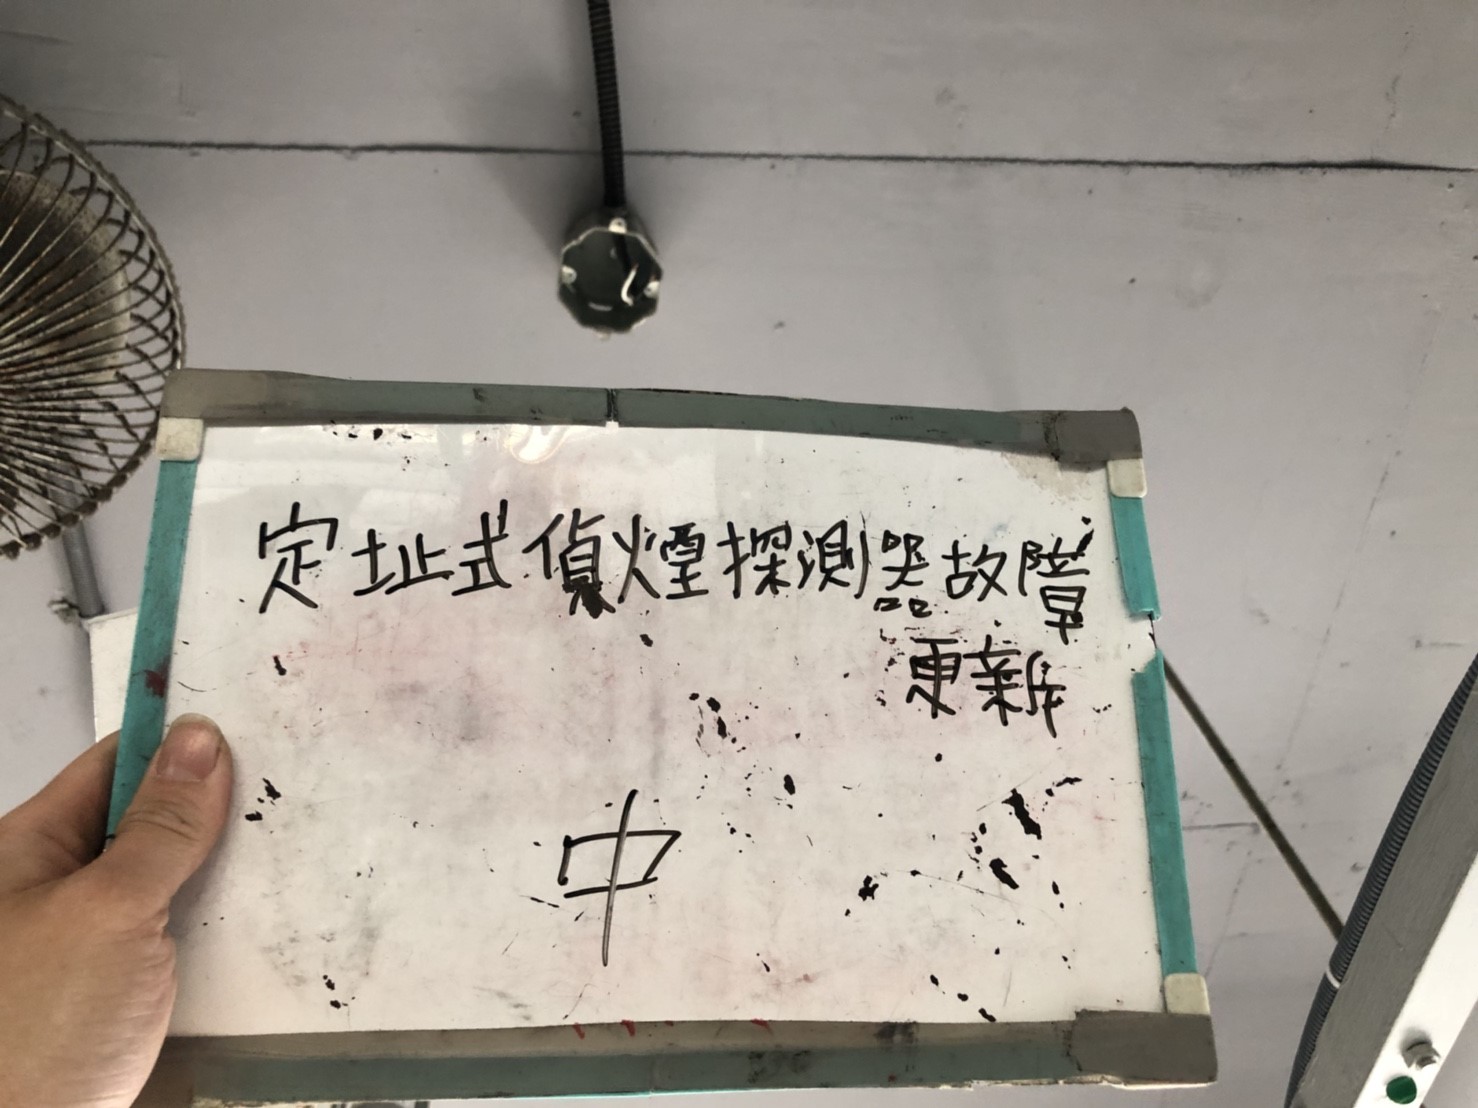 定址式偵煙探測器故障
更新
中